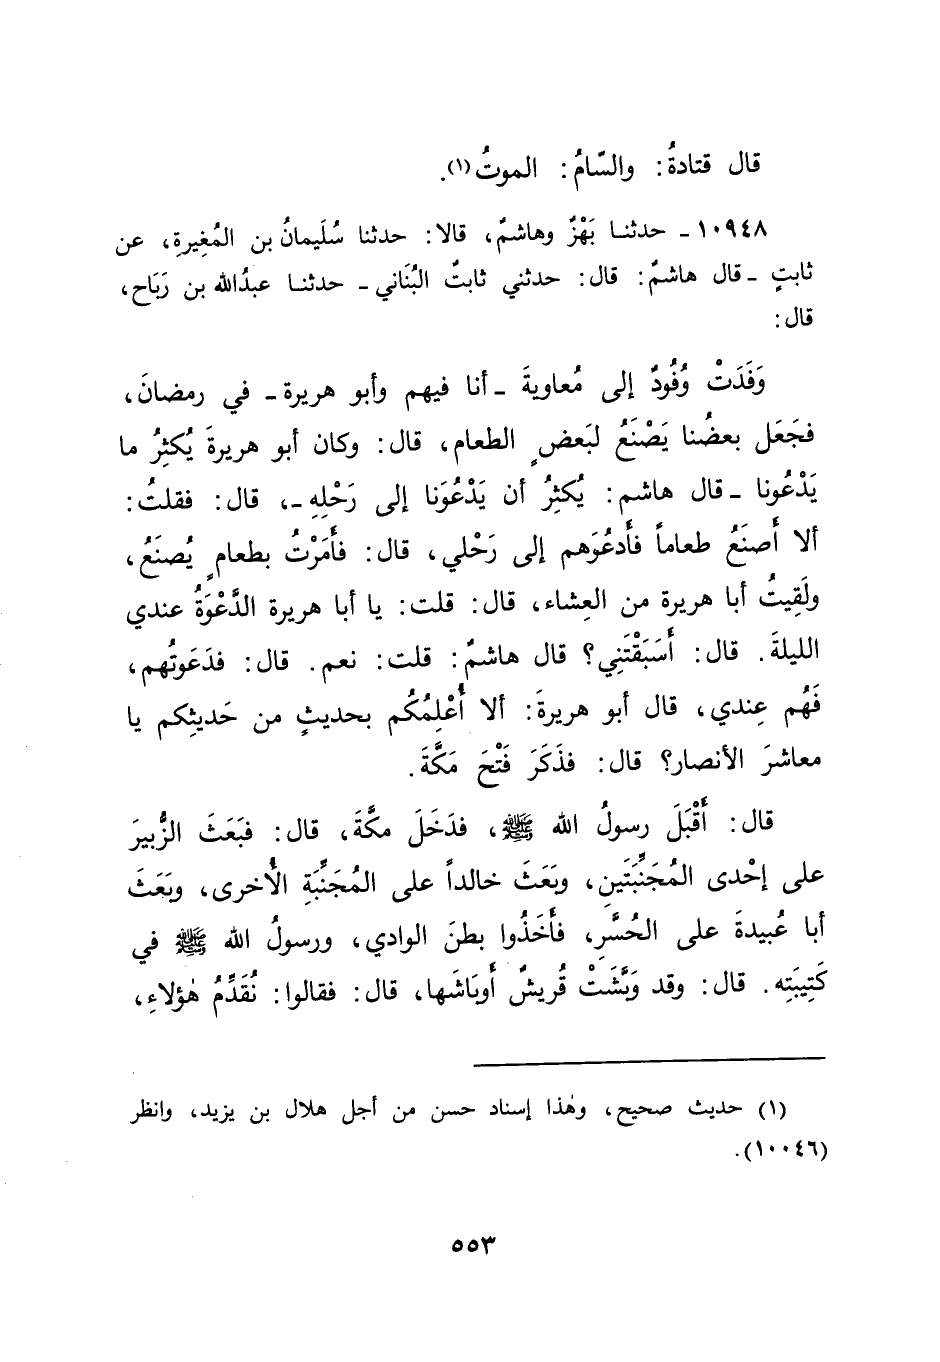 قال قتادةُ: والسّامُ: الموتُ(١).
١٠٩٤٨ - حدثنا بَهْزٌ وهاشمٌ، قالا: حدثنا سُلَيمانُ بن المُغِيرةِ، عن
ثابتٍ - قال هاشمٌ: قال: حدثني ثابتٌ البُنَاني - حدثنا عبدُالله بن رَبَاح،
قال:
وَفَدَتْ وُفُودٌ إلى مُعاويةَ - أنا فيهم وأبو هريرة - في رمضانَ،
فجَعَل بعضُنا يَصْنَعُ لبَعضٍ الطعام، قال: وكان أبو هريرةَ يُكثِرُ ما
يَدْعُونا - قال هاشم: يُكثِرُ أن يَدْعُوَنا إلى رَحْلِهِ -، قال: فقلتُ:
ألا أَصنَعُ طعاماً فأَدعُوَهم إلى رَحْلي، قال: فأَمَرْتُ بطعامٍ يُصنَعُ،
ولَقِيتُ أبا هريرة من العِشاء، قال: قلت: يا أبا هريرة الدَّعْوَةُ عندي
الليلةَ. قال: أَسَبَقْتَنِي؟ قال هاشمٌ: قلت: نعم. قال: فدَعَوتُهم،
فَهُم عِندي، قال أبو هريرةَ: ألا أُعْلِمُكُم بحديثٍ من حَديثِكم يا
معاشرَ الأنصار؟ قال: فذَكَرَ فَتْحَ مَكَّةَ.
قال: أَقْبَلَ رسولُ الله ﷺ، فدَخَلَ مكَّةَ، قال: فبَعَثَ الزُّبيرَ
على إحْدى المُجَنِّبَتَينِ، وبَعَثَ خالداً على المُجَنِّبَةِ الأُخرى، وبَعَثَ
أبا عُبيدةَ على الحُسَّرِ، فأَخَذُوا بطنَ الوادي، ورسولُ الله ﷺ في
كَتِيبَتِه. قال: وقد وَبَّشَتْ قُريشٌ أَوبَاشَها، قال: فقالوا: نُقَدِّمُ هٰؤلاءِ،
(١) حديث صحيح، وهٰذا إسناد حسن من أجل هلال بن يزيد، وانظر
(١٠٠٤٦).
٥٥٣